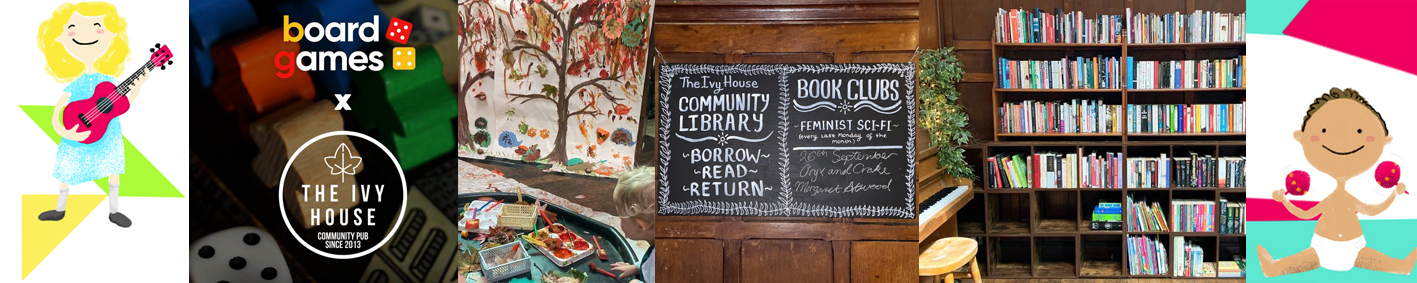 board
games
x
THE IVY
HOUSE
COMMUNITY PUB
SINCE 2013
The Ivy House
COMMUNITY
LIBRARY
~BORROW~
~READ~
~RETURN~
BOOK CLUBS
~FEMINIST SCI-FI~
(every last Monday of the
month)
26th September
Oryx and Crake
Margaret Atwood